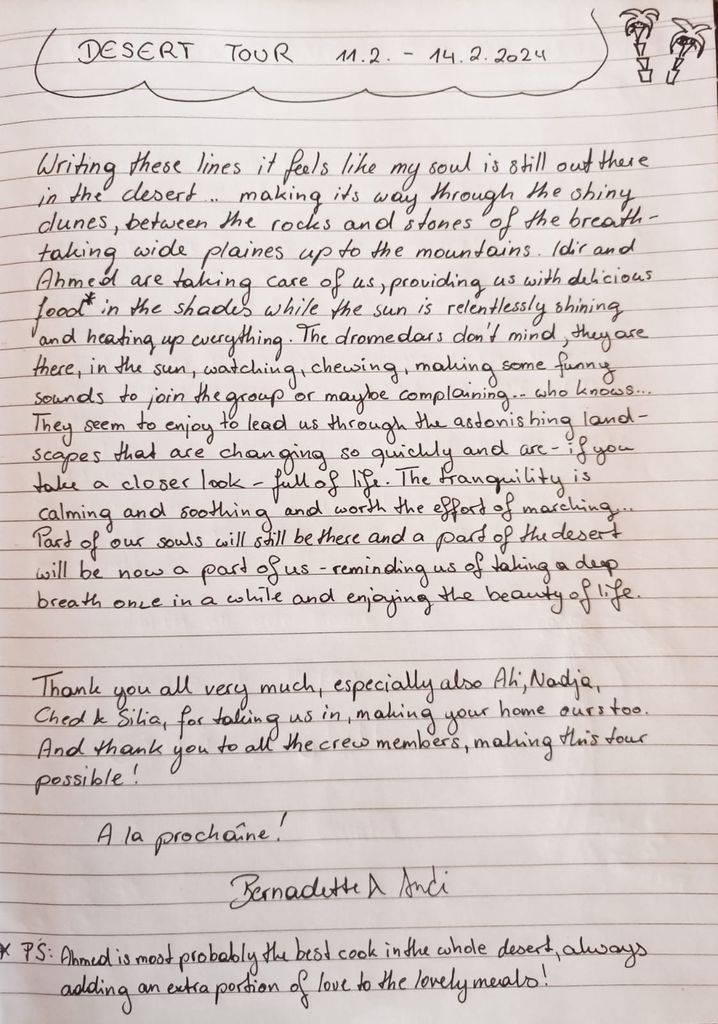 DESERT TOUR 11.2. - 14.2.2024
Writing these lines it feels like my soul is still out there
in the desert .. making its way through the shiny
dunes, between the rocks and stones of the breath-
taking wide plaines up to the mountains. Idir and
Ahmed are taking care of us, providing us with delicious
food* in the shades while the sun is relentlessly shining
and heating up everything. The dromedars don't mind, they are
there, in the sun, watching, chewing, making some funny
sounds to join the group or maybe complaining... who knows...
They seem to enjoy to lead us through the astonishing land-
scapes that are changing so quickly and are - if you
take a closer look - full of life. The tranquility is
calming and soothing and worth the effort of marching...
Part of our souls will still be there and a part of the desert
will be now a part of us - reminding us of taking a deep
breath once in a while and enjoying the beauty of life.
Thank you all very much, especially also Ali, Nadja,
Ched & Silia, for taking us in, making your home ours too.
And thank you to all the crew members, making this tour
possible!
A la prochaîne!
Bernadette & Andi
* PS: Ahmed is most probably the best cook in the whole desert, always
adding an extra portion of love to the lovely meals!